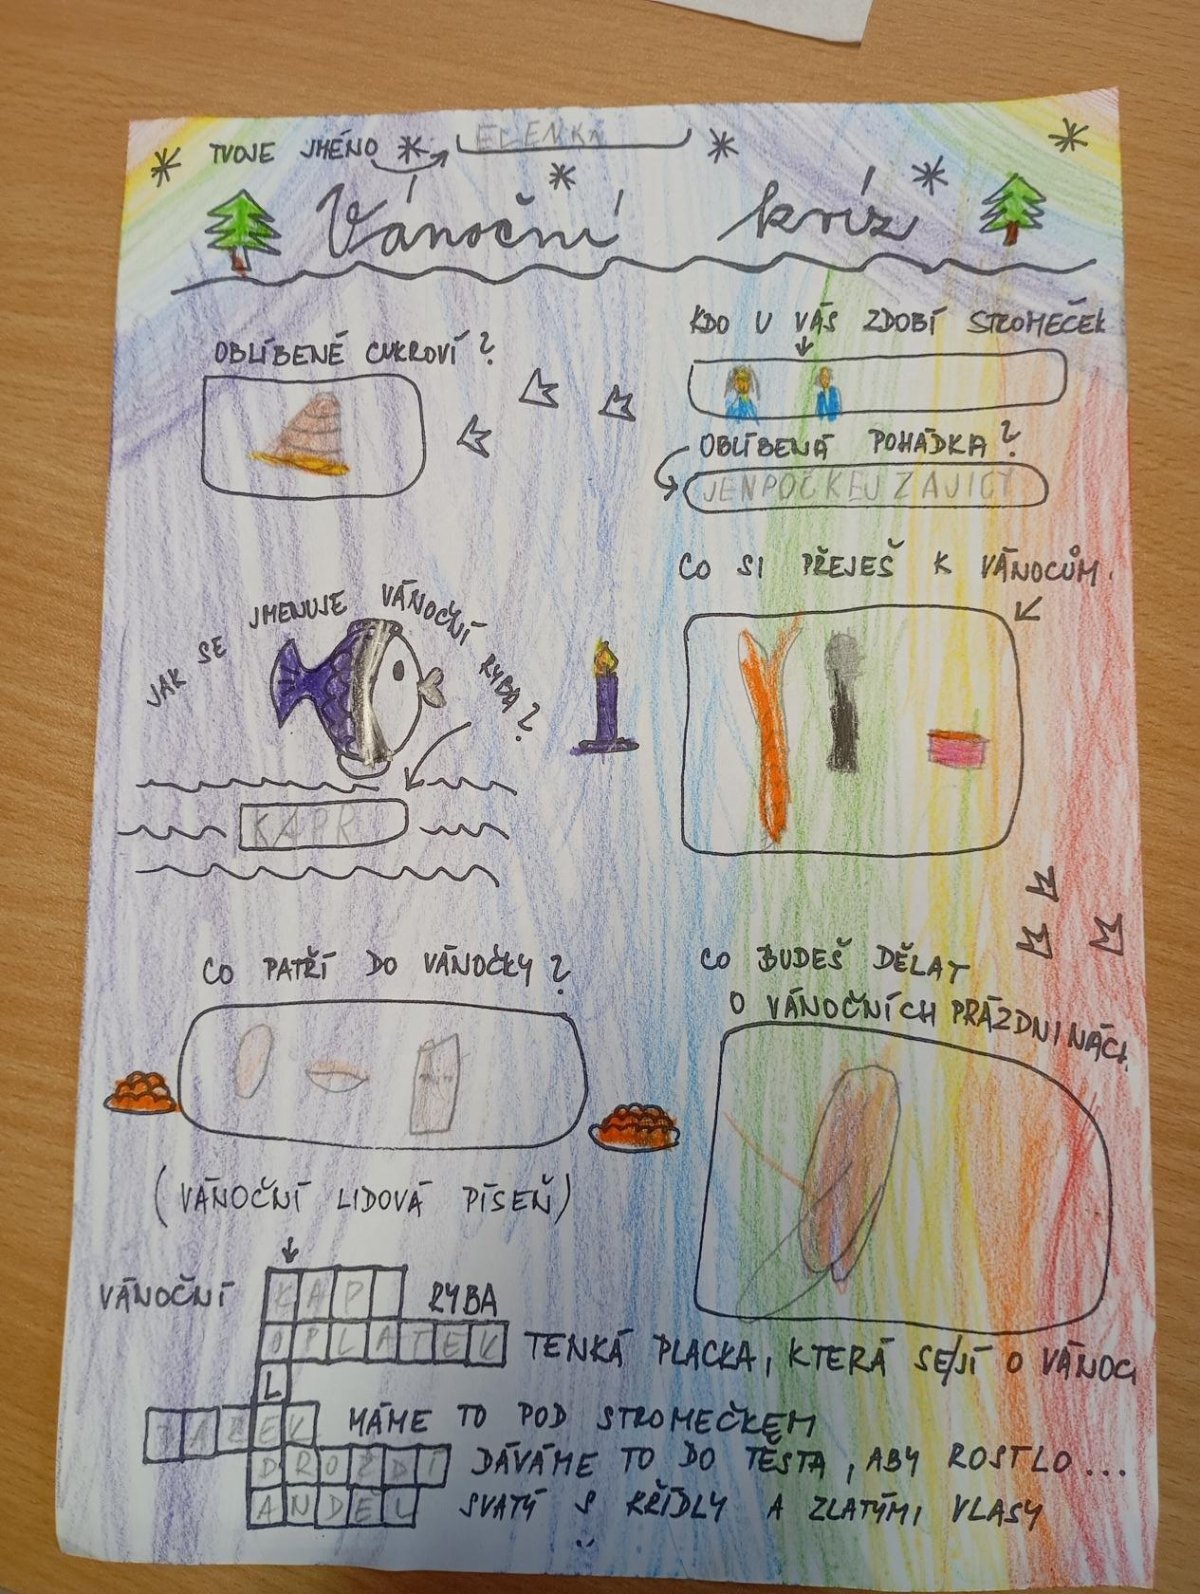 TVOJE JMÉNO ELENKA
Vánoční kvíz
OBLÍBENÉ CUKROVÍ?
KDO U VÁS ZDOBÍ STROMEČEK
OBLÍBENÁ POHÁDKA?
JENPOČKEJ ZAJICI
CO SI PŘEJEŠ K VÁNOCŮM.
JAK SE JMENUJE VÁNOČNÍ RYBA?
KAPR
CO PATŘÍ DO VÁNOČKY?
CO BUDEŠ DĚLAT
O VÁNOČNÍCH PRÁZDNINÁCH
(VÁNOČNÍ LIDOVÁ PÍSEŇ)
VÁNOČNÍ KAP RYBA
OPLATEK TENKÁ PLACKA, KTERÁ SE JÍ O VÁNOC
L
MÁME TO POD STROMEČKEM
DROŽDÍ DÁVÁME TO DO TĚSTA, ABY ROSTLO...
ANDĚL SVATÝ S KŘÍDLY A ZLATÝMI VLASY